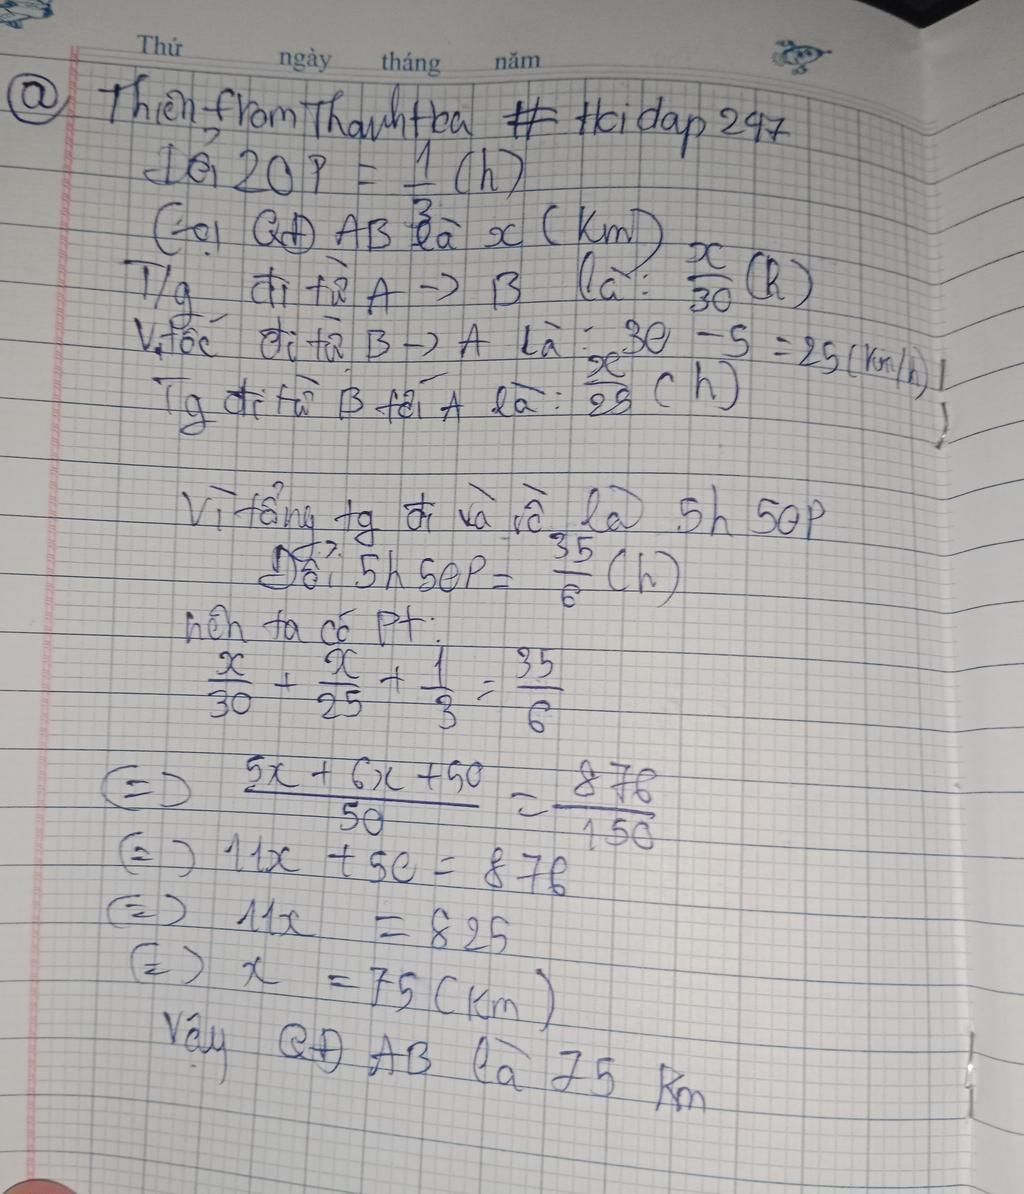 Thứ ngày tháng năm
@ Thiên from Thanhtba # Hoidap 247
Đổi 20P = 1/3 (h)
Gọi QĐ AB là x (Km)
T/g đi từ A -> B là: x/30 (h)
V.tốc đi từ B -> A là: 30 - 5 = 25 (Km/h)
Tg đi từ B tới A là: x/25 (h)
Vì tổng tg đi và về là 5h 50P
Đổi 5h 50P = 35/6 (h)
nên ta có Pt:
x/30 + x/25 + 1/3 = 35/6
(=) (5x + 6x + 50)/50 = 876/150
(=) 11x + 50 = 876
(=) 11x = 825
(=) x = 75 (Km)
Vậy QĐ AB là 75 Km